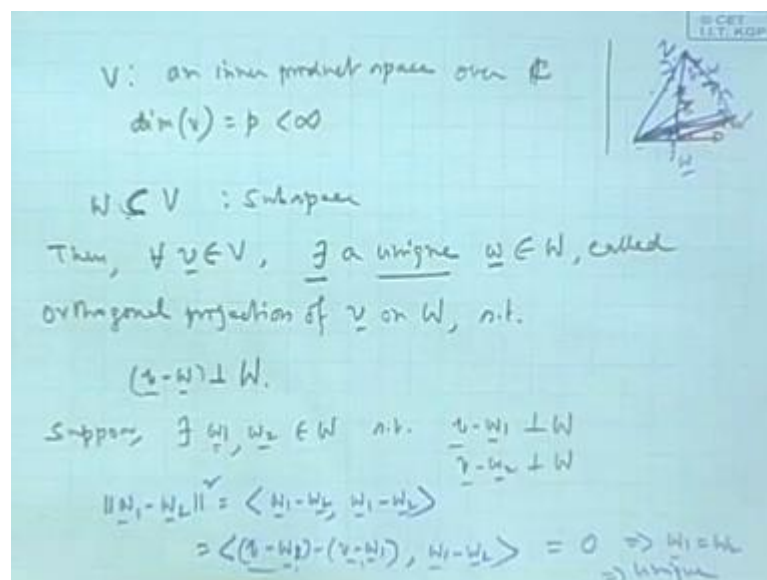 © CET
I.I.T. KGP
V: an inner product space over ℂ
dim(V) = p < ∞
W ⊆ V : Subspace
Then, ∀ v ∈ V, ∃ a unique w ∈ W, called
orthogonal projection of v on W, s.t.
(v-w) ⊥ W.
Suppose, ∃ w1, w2 ∈ W s.t. v-w1 ⊥ W
v-w2 ⊥ W
||w1-w2||² = <w1-w2, w1-w2>
= <(v-w2)-(v-w1), w1-w2> = 0 => w1=w2
=> unique